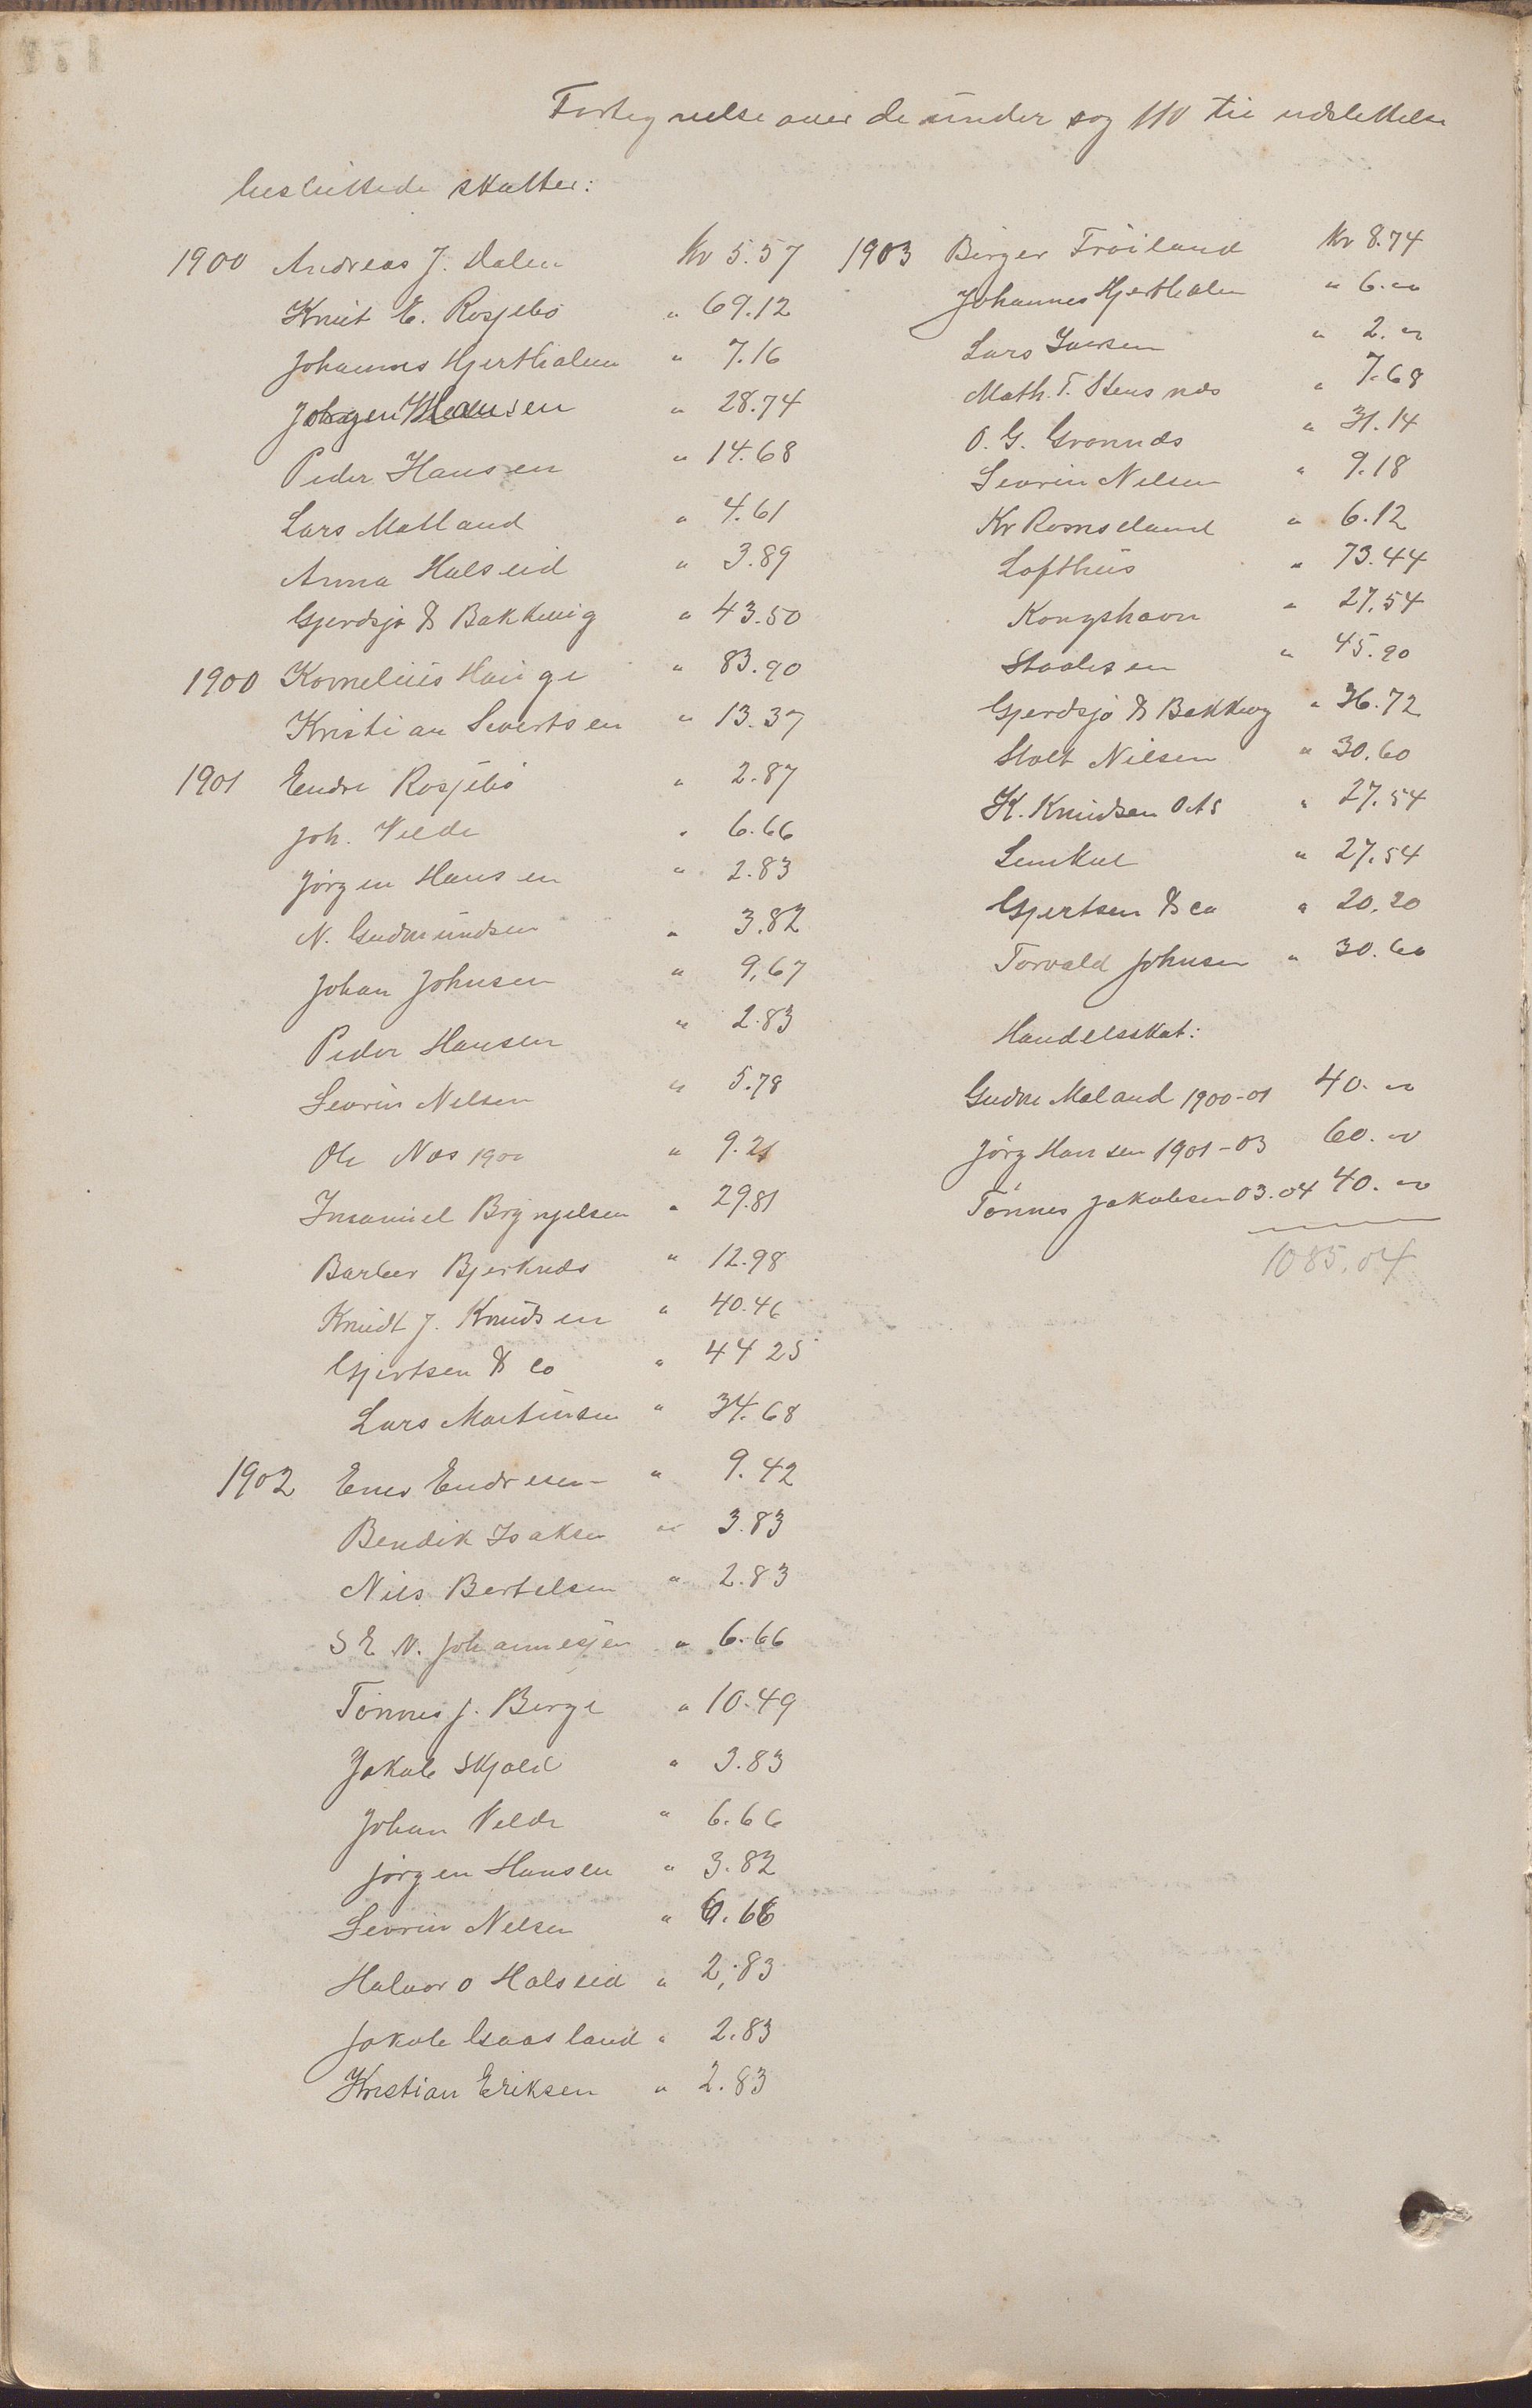 Fortegnelse over de under sag 110 til udslettelse
besluttede skatter:
1900 Andreas J. Dalen Kr 5.57
Knut E. Rosjebö " 69.12
Johannes Hjerthalen " 7.16
Jørgen Hansen " 28.74
Peder Hansen " 14.68
Lars Matland " 4.61
Anna Halseid " 3.89
Gjerdsjø & Bakkevig " 43.50
1900 Kornelius Hauge " 83.90
Kristian Sivertsen " 13.37
1901 Endre Rosjebö " 2.87
Joh. Velde " 6.66
Jörgen Hansen " 2.83
N. Gudmundsen " 3.82
Johan Johnsen " 9,67
Peder Hansen " 2.83
Sevrin Nelsen " 5.78
Ole Næs 1900 " 9.21
Insamiel Brynjelsen " 29.81
Barber Bjerknæs " 12.98
Knudt J. Knudsen " 40.46
Gjertsen & Co " 44 25
Lars Martinsen " 34.68
1902 Enes Endresen " 9.42
Bendik Isaksen " 3.83
Nils Bertelsen " 2.83
S E N. Johannesen " 6.66
Tönnes J. Berge " 10.49
Jakob Skjold " 3.83
Johan Velde " 6.66
Jörgen Hansen " 3.82
Sevrin Nelsen " 6.66
Halvor O Halseid " 2,83
Jakob Gaasland " 2.83
Kristian Eriksen " 2.83
1903 Birger Fröiland Kr 8.74
Johannes Hjerthalen " 6.00
Lars Iversen " 2.00
Math. T. Stensnæs " 7.68
O. G. Gronnæs " 31.14
Sevrin Nelsen " 9.18
Kr Romseland " 6.12
Lofthus " 73.44
Kongshavn " 27.54
Staalesen " 45.90
Gjerdsjø & Bakkevig " 36.72
Stolt Nilsen " 30.60
K. Knudsen OAS " 27.54
Lemkul " 27.54
Gjertsen & Co " 20.20
Torvald Johnsen " 30.60
Handelsskat:
Gudm Maland 1900-01 40.00
Jörg Hansen 1901-03 60.00
Tönnes Jakobsen 03.04 40.00
1085.04